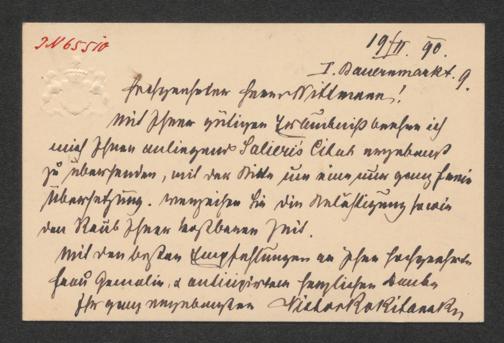 JN 65510
19/II. 90.
I. Bauernmarkt. 9.
Hochgeehrter Herr Wittmann!
Mit Ihrer gütigen Erlaubniß beehre ich
mich Ihnen anliegend Salieris Citat ergebenst
zu übersenden, mit der Bitte um eine nur ganz freie
Übersetzung. Verzeihen Sie die Belästigung sowie
den Raub Ihrer kostbaren Zeit.
Mit den besten Empfehlungen an Ihre hochgeehrte
Frau Gemalin, & anticipirtem herzlichen Danke
Ihr ganz ergebenster Victor Rokitansky